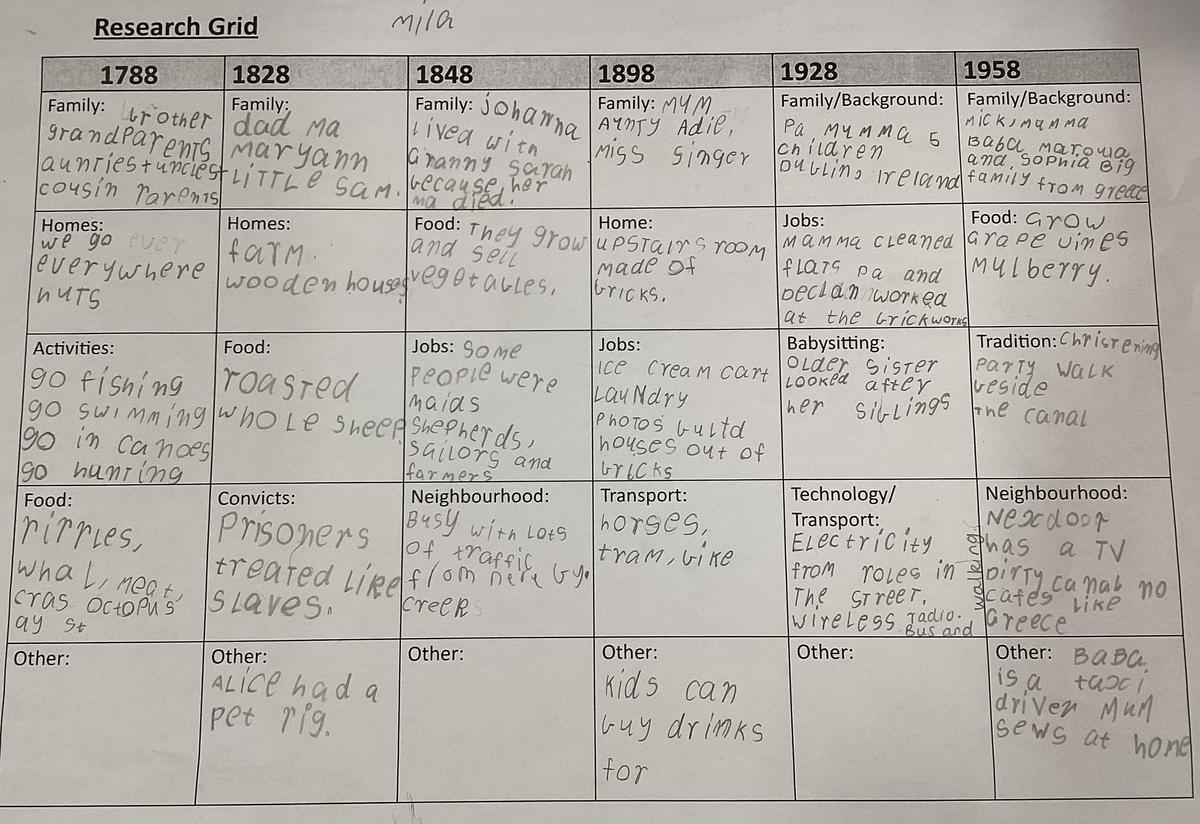 Research Grid
Mila
1788
1828
1848
1898
1928
1958
Family: brother
grandparents
aunties+uncles
cousin parents
Family:
dad Ma
Maryann
LITTLE Sam.
Family: johanna
Lived with
Granny Sarah
because her
ma died.
Family: MUM
AUNTY Adie,
Miss Singer
Family/Background:
Pa Mumma 5
children
Dublin, Ireland
Family/Background:
Mick, Mumma
Baba Maroula
and Sophia Big
family from greece
Homes:
we go ever
everywhere
huts
Homes:
farm.
wooden houses
Food: They grow
and sell
vegetables.
Home:
upstairs room
made of
bricks.
Jobs:
Mamma cleaned
flats pa and
Declan worked
at the brickworks
Food: Grow
Grape vines
Mulberry.
Activities:
go fishing
go swimming
go in canoes
go hunting
Food:
roasted
whole sheep
Jobs: Some
people were
maids
shepherds,
sailors and
farmers
Jobs:
ice cream cart
Laundry
Photos build
houses out of
bricks
Babysitting:
Older sister
Looked after
her siblings
Tradition: Christening
Party Walk
beside
The canal
Food:
pippies,
whal, meat,
cras octopus
Convicts:
Prisoners
treated Like
Slaves.
Neighbourhood:
Busy with Lots
of traffic
from nere by.
creer
Transport:
horses,
tram, bike
Technology/
Transport:
Electricity
from poles in
The Street.
wireless radio.
Bus and
walking.
Neighbourhood:
Nexdoor
has a TV
Dirty canal no
cafes like
Greece
Other:
Other:
Alice had a
pet pig.
Other:
Other:
kids can
buy drinks
for
Other:
Other: BaBa
is a taxi
driver Mum
sews at home